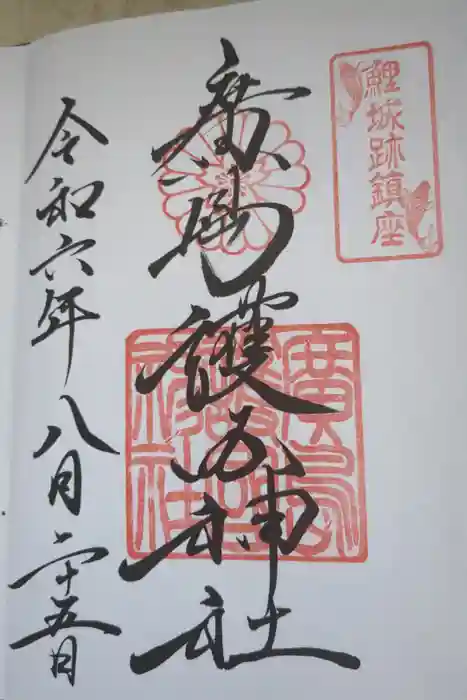 鯉城跡鎮座
廣島護國神社
廣島護國神社
令和六年八月二十五日